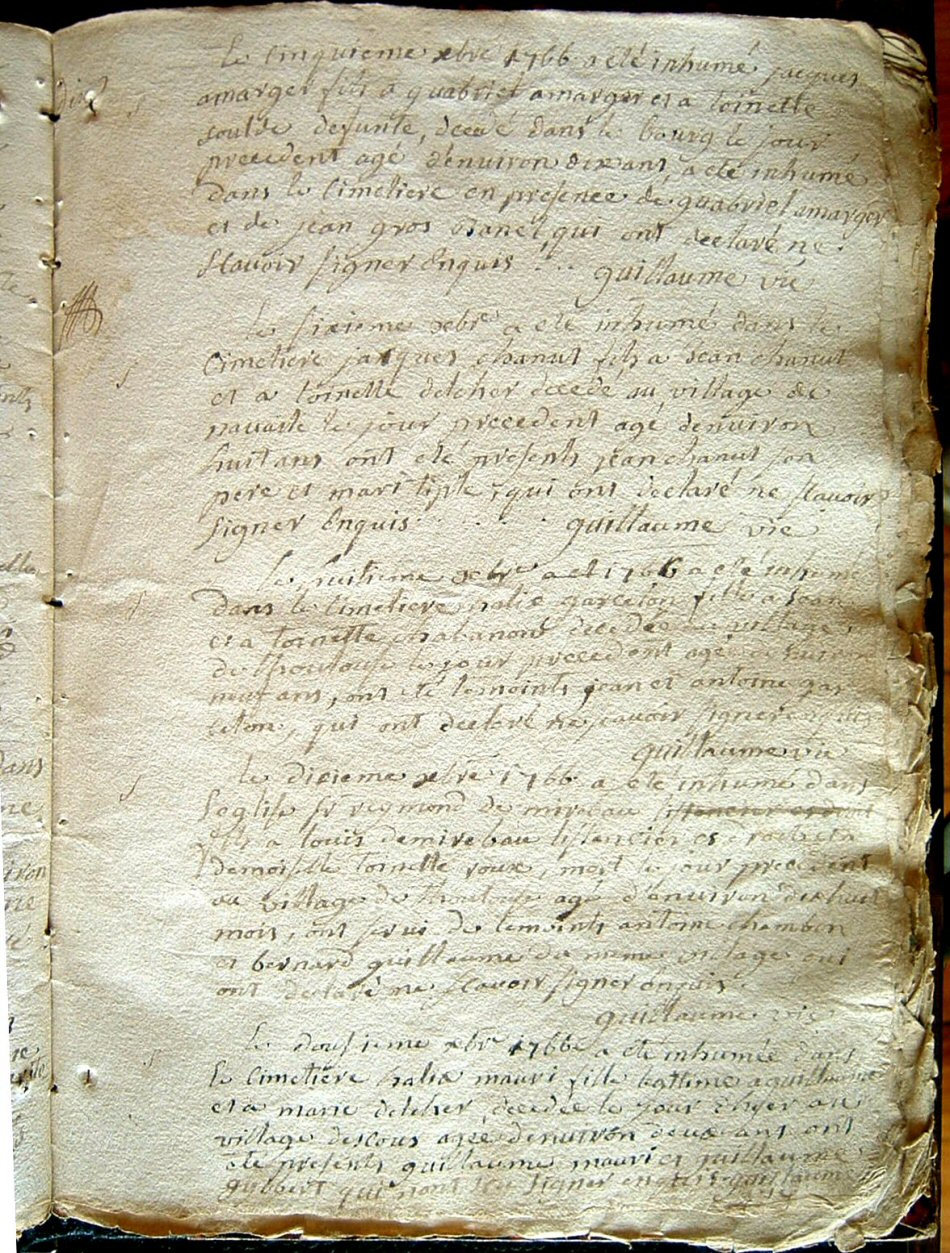 Le cinquieme xbre 1766 a été inhumé jacques
amarger fils a quabriel amarger et a toinette
soulde defunte, decedé dans le bourg le jour
precedent agé d'enuiron dix ans, a eté inhumé
dans le cimetiere en presence de quabriel amarger
et de jean gros, qui ont declaré ne
sçavoir signer Enquis . . . guillaume vié
Le sixieme xbre a eté inhumé dans le
cimetiere jacques chanut fils a jean chanut
et a toinette delcher decedé au village de
le jour precedent agé d'enuiron
huit ans ont eté presents jean chanut son
pere et , qui ont declaré ne sçavoir
signer Enquis . . . . guillaume vie
Le huitieme xbre 1766 a eté
dans le cimetiere garcelon fille a jean
et a toinette chabanon decedée au village
de le jour precedent agée de
neuf ans, ont eté temoints jean et antoine gar
celon, qui ont declaré ne scavoir signer enquis
guillaume vie
Le dixieme xbre 1766 a eté inhumé dans
l'eglise sr reymond de mirebau
fils a louis de mirebau et a
demoiselle toinette roux, mort le jour precedent
au village de agé d'enuiron dixhuit
mois, ont servi de temoints antoine chambon
et bernard guillaume du meme village qui
ont declaré ne sçavoir signer enquis.
guillaume vie
Le dousieme xbre 1766 a eté inhumée dans
le cimetiere mauri fille a guillaume
et a marie delcher, decedée le jour d'hyer au
village agée d'enuiron deux ans ont
eté presents guillaume mauri et guillaume
qui n'ont sçu signer enquis guillaume